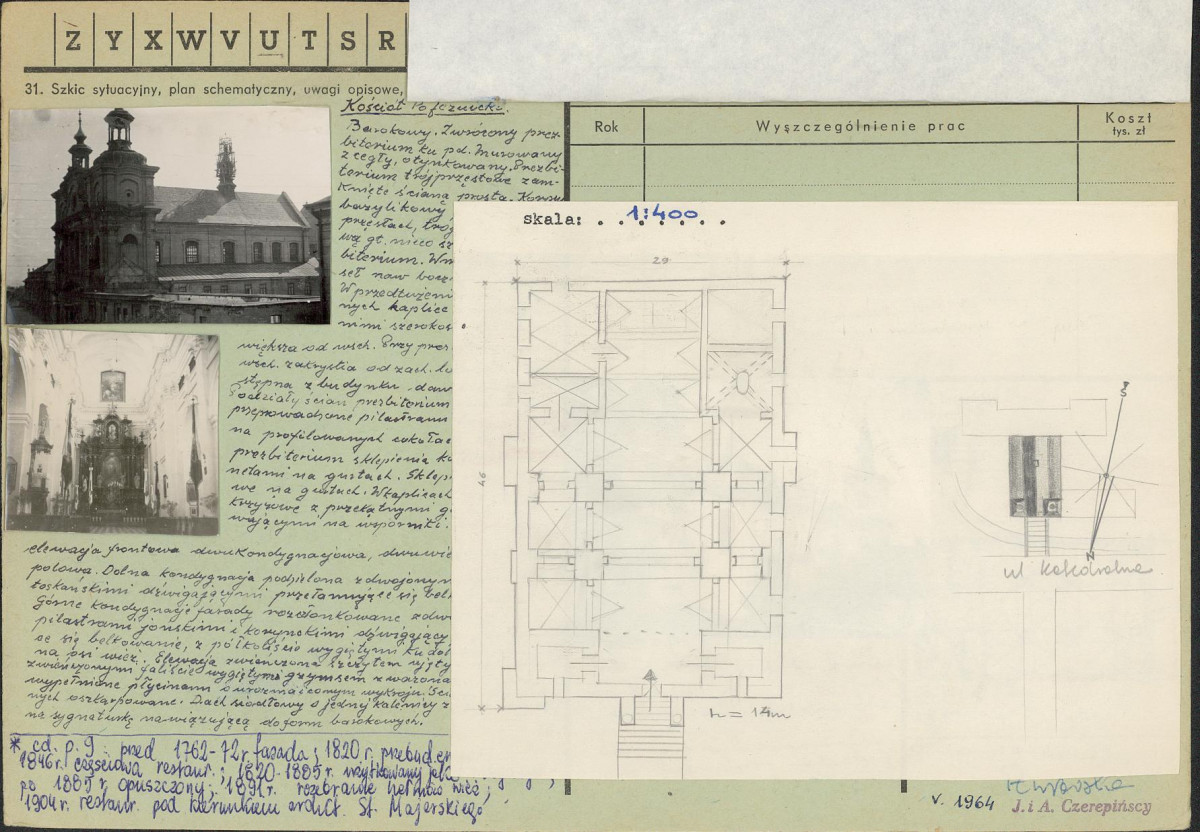 Z Y X W V U T S R
31. Szkic sytuacyjny, plan schematyczny, uwagi opisowe,
Kościół
Barokowy. Zwrócony prez-
biterium ku pd. Murowany
z cegły, otynkowany. Prezbi-
terium trójprzęsłowe zam-
knięte ścianą prostą. Korpus
bazylikowy
przęsłach, trój
wą gł. nieco sz
biterium. Wn
seł naw bocz
W przedłużeni
nych kaplice
nimi szerokoś
większa od wsch. Przy prez
wsch. zakrystia od zach.
stępna z budynku daw
Podziały ścian prezbiterium
przeprowadzone pilastrami
na profilowanych cokołac
prezbiterium sklepienia ko
netami na gurtach. Sklep
we na gurtach. W kaplicach
krzyżowe z przekątnymi g
wającymi na wsporniki.
elewacja frontowa dwukondygnacjowa, dwuwie
polowa. Dolna kondygnacja podzielona zdwojonym
toskańskimi dźwigającymi przełamujące się belk
Górne kondygnacje fasady rozczłonkowane zdw
pilastrami jońskimi i korynckimi dźwigający
ce się belkowanie, z półkoliście wygiętymi ku doł
na osi wież. Elewacja zwieńczona szczytem ujęty
zwieńczonymi faliście wygiętym gzymsem z wazona
wypełnione płycinami o urozmaiconym wykroju. Ści
nych oszkarpowane. Dach siodłowy o jednej kalenicy z
na sygnaturkę nawiązującą do form barokowych.
* cd. p. 9 : przed 1762-72 r. fasada ; 1820 r. przebud
1846 r. częściowa restaur. ; 1820-1885 r. użytkowany
po 1885 r. opuszczony ; 1891 r. rozebranie hełmów wież ;
1904 r. restaur. pod kierunkiem archit. St. Majerskiego
Rok
Wyszczególnienie prac
Koszt
tys. zł
skala: 1:400
29
46
h = 14m
S
N
ul Katedralna
V. 1964
J. i A. Czerepińscy